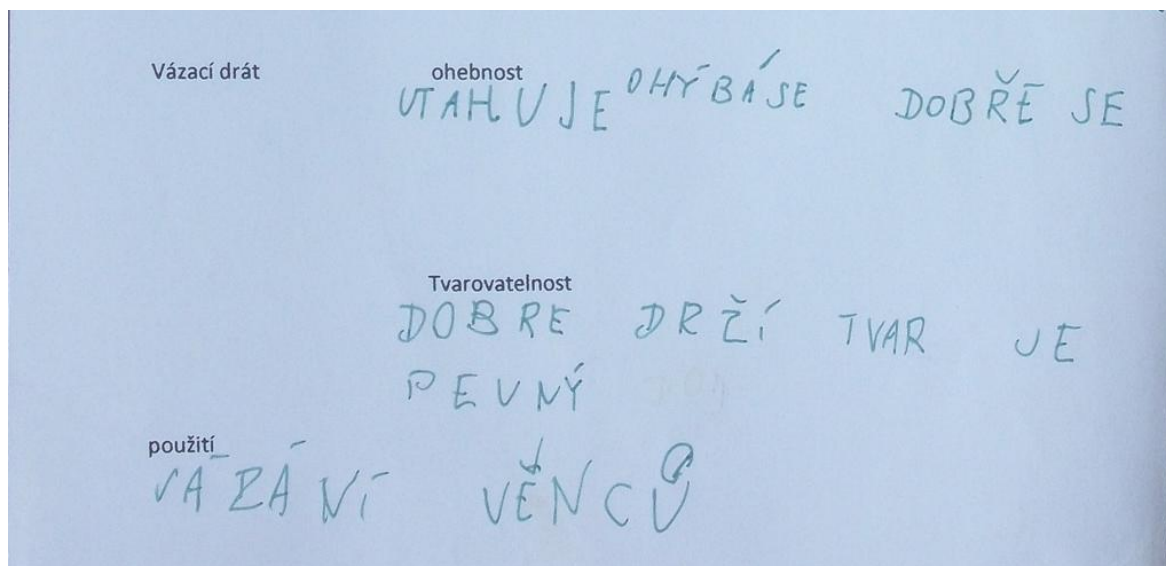 Vázací drát ohebnost
UTAHUJE OHÝBÁSE DOBŘE SE
Tvarovatelnost
DOBRE DRŽÍ TVAR JE
PEVNÝ
použití
VÁZÁNÍ VĚNCŮ